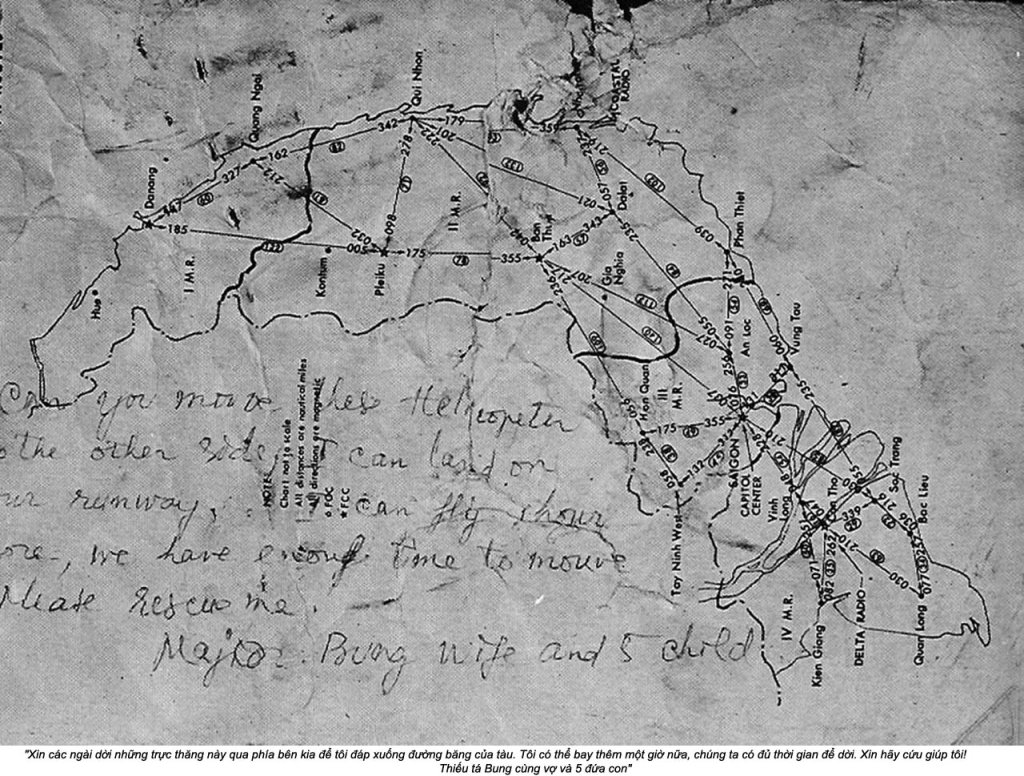 Danang
Quang Ngai
Qui Nhon
COASTAL RADIO
Hue
I M.R.
Kontum
Pleiku
II M.R.
Ban
Dalat
Gia Nghia
Phan Thiet
An Loc
Vung Tau
Hon Quan
III M.R.
SAIGON
CAPITOL CENTER
Tay Ninh West
Vinh Long
Can Tho
Soc Trang
Bac Lieu
IV M.R.
Kien Giang
DELTA RADIO
Quan Long
185
327
162
342
179
278
098
032
005
175
355
163
343
021
057
235
039
217
207
055
027
091
271
175
355
132
058
238
235
262
071
082
270
030
077
257
036
NOTES
Chart not to scale
All distances are nautical miles
All directions are magnetic
FOC
★ FCC
Can you mouve these Helicopter
o the other side, I can land on
ur runway, I can fly 1 hour
ore, we have enough time to mouve
Please rescue me.
Major Bung wife and 5 child
"Xin các ngài dời những trực thăng này qua phía bên kia để tôi đáp xuống đường băng của tàu. Tôi có thể bay thêm một giờ nữa, chúng ta có đủ thời gian để dời. Xin hãy cứu giúp tôi!
Thiếu tá Bung cùng vợ và 5 đứa con"